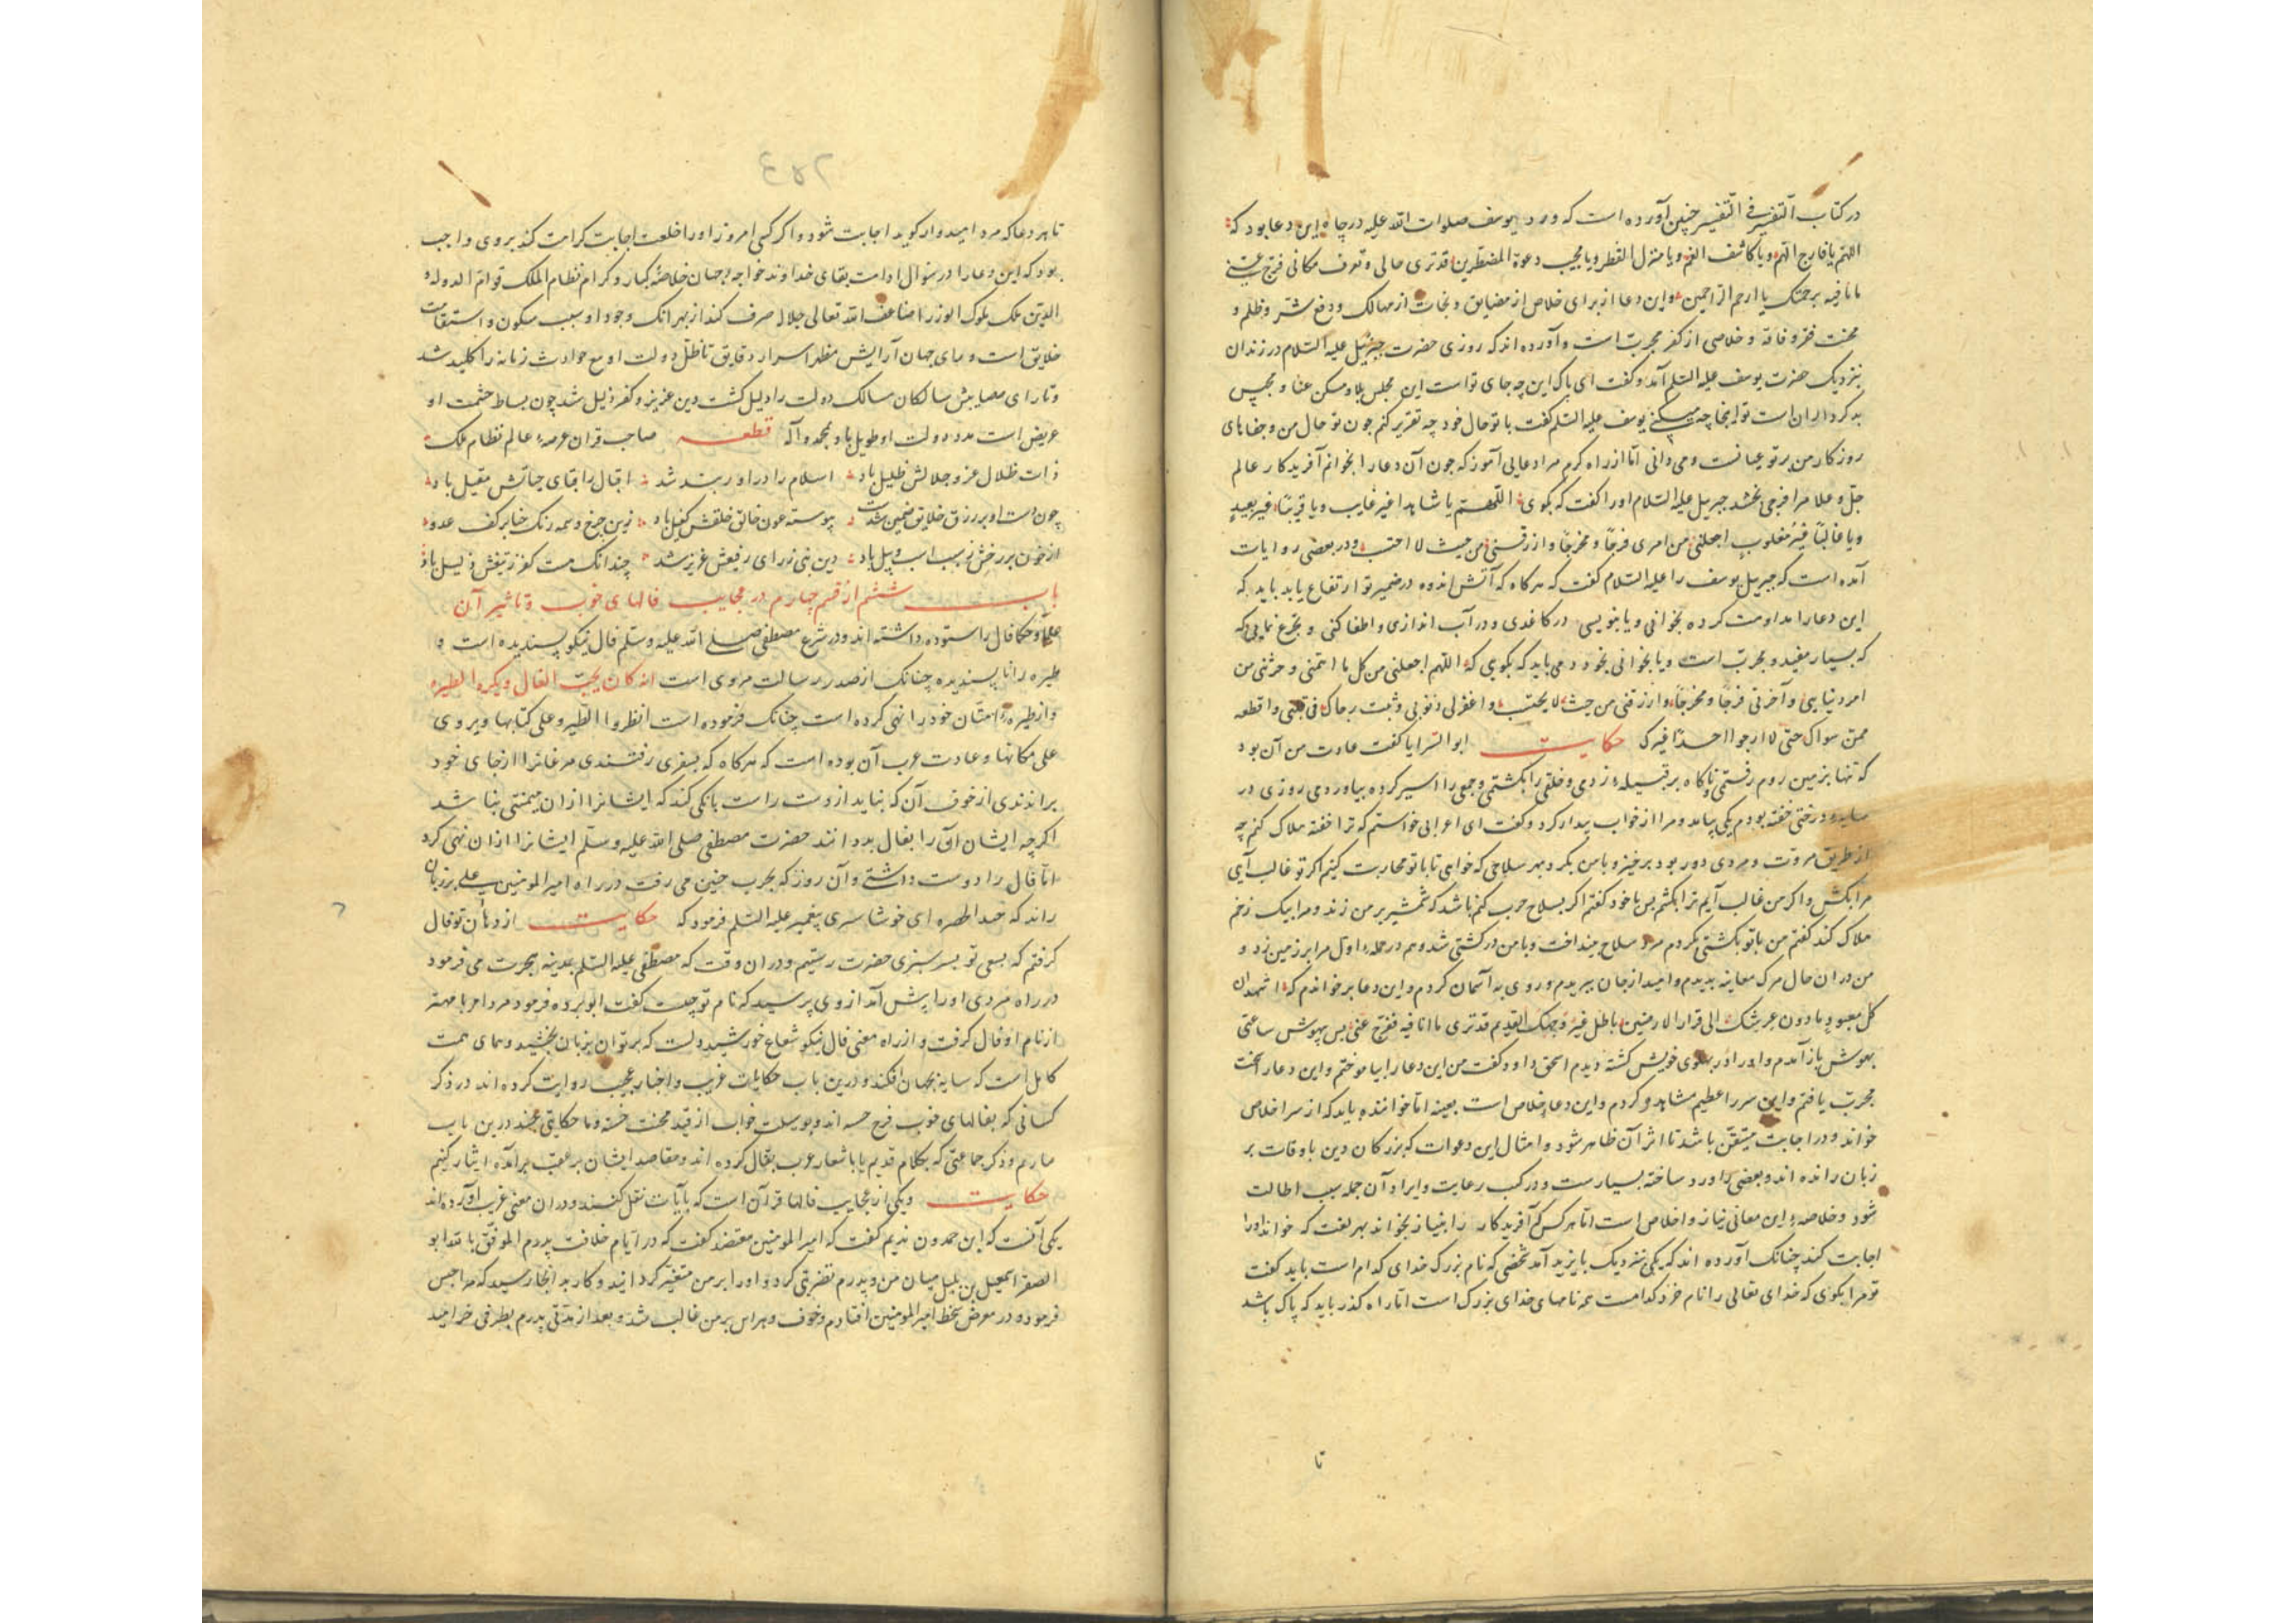 در کتاب التفسیر فی التفسیر چنین آورده است که ورد یوسف صلوات الله علیه در چاه این دعا بود که
اللهم یا فارج الهم و یا کاشف الغم و یا منزل القطر و یا مجیب دعوة المضطرین قد تری حالی و تعرف مکانی فرج عنی
ما انا فیه برحمتک یا ارحم الراحمین و این دعا از برای خلاص از مضایق و نجات از مهالک و دفع شر و ظلم و
محنت فقر و فاقه و خلاصی از کفر مجربست و آورده اند که روزی حضرت جبرئیل علیه السلام در زندان
بنزدیک حضرت یوسف علیه السلم آمد و گفت ای پاک این چه جای تو است این مجلس بلا و مسکن عنا و محبس
بدکرداران است تو اینجا چه میکنی یوسف علیه السلم گفت با تو حال خود چه تقریر کنم چون تو حال من و جفاهای
روزکار من پرتو عیانست و می دانی اما از راه کرم مرا دعایی آموز که چون آن دعا را بخوانم آفریدکار عالم
جل و علا مرا فرجی بخشد جبریل علیه السلام او را گفت که بکوی اللهم یا شاهدا غیر غایب و یا قریبا غیر بعید
و یا غالبا غیر مغلوب اجعلنی من امری فرجا و مخرجا و ارزقنی من حیث لا احتسب و در بعضی روایات
آمده است که جبریل یوسف را علیه السلام گفت که هرکاه که آتش اندوه در ضمیر تو ارتفاع یابد باید که
این دعا را مداومت کرده بخوانی و یا بنویسی در کاغذی و در آب اندازی و اطفا کنی و تجرع نمایی که
که بسیار مفید و مجرب است و یا بخوانی بخود دمی باید که بکویی که اللهم اجعلنی من کل ما اهمنی و حزننی من
امر دنیایی و آخرتی فرجا و مخرجا و ارزقنی من حیث لا یحتسب و اغفر لی ذنوبی و ثبت رجاک فی قلبی و اقطعه
ممن سواک حتی لا ارجوا احدا غیرک حکایت ابو السرایا گفت عادت من آن بود
که تنها بزمین روم رفتمی و ناکاه بر قبیله زدمی و خلقی را بکشتمی و جمعی را اسیر کرده بیاوردمی روزی در
سایه درختی خفته بودم یکی بیامد و مرا از خواب بیدار کرد و گفت ای اعرابی خواستم که ترا خفته هلاک کنم چه
از طریق مروت و مردی دور بود برخیز و با من بکرد بهر سلاحی که خواهی تا با تو محاربت کنیم اکر تو غالب آیی
مرا بکش و اکر من غالب آیم ترا بکشم پس با خود گفتم اکر بسلاح حرب کنم باشد که شمشیر بر من زند و مرا بیک زخم
هلاک کند گفتم من با تو بکشتی بکردم مرد سلاح بینداخت و با من در کشتی شد و هم در حمله اول مرا بر زمین زد و
من دران حال مرک معاینه بدیدم و امید از جان ببریدم و روی به آسمان کردم و این دعا برخواندم که اشهد ان
کل معبود ما دون عرشک الی قرار الارضین باطل غیر وجهک القدیم قد تری ما انا فیه ففرج عنی پس بیهوش ساعتی
بهوش باز آمدم و او را در پهلوی خویش کشته دیدم اسحق داود گفت من این دعا را بیاموختم و این دعا را سخت
مجرب یافتم و این سر را عظیم مشاهده کردم و این دعا خلاص است بعینه اما خواننده باید که از سر اخلاص
خواند و در اجابت متیقن باشد تا اثر آن ظاهر شود و امثال این دعوات که بزرکان دین باوقات بر
زبان رانده اند و بعضی را ورد ساخته بسیارست و در کتب رعایت و ایراد آن جمله سبب اطالت
شود و خلاصه این معانی نیاز و اخلاص است اما هر کس که آفریدکار را بنیاز بخواند بهر لغت که خواند او را
اجابت کند چنانک آورده اند که یکی نزدیک بایزید آمد شخصی که نام بزرک خدای کدام است باید گفت
تو مرا بکوی که خدای تعالی را نام خرد کدامست همه نامهای خدای بزرک است اما راه کذر باید که پاک باشد
تا
۲۵۴
تا هر دعا که مرد امیدوار کوید اجابت شود و اکر کسی امروز او را خلعت اجابت کرامت کند بر وی واجب
بود که این دعا را در سؤال ادامت بقای خداوند خواجه جهان خلاصه کبار و کرام نظام الملک قوام الدوله و
الدین ملک ملوک الوزرا ضاعف الله تعالی جلاله صرف کند از بهر آنک وجود او سبب سکون و استقامت
خلایق است و رای جهان آرایش مظهر اسرار دقایق تا ظل دولت او مع حوادث زمانه را کلید شد
و تا رای مصابیش سالکان مسالک دولت را دلیل کشت دین عزیز و کفر ذلیل شد چون بساط حشمت او
عریض است مدد دولت او طویل باد بمحمد و آله قطعه صاحب قران عرصه عالم نظام ملک
ذات ظلال عز و جلالش ظلیل باد اسلام را در او رسند شد اقبال را بقای جنابش مقیل باد
چون دست او بر رزق خلایق ضمین شدست پیوسته عون خالق خلقش کفیل باد زین چرخ وسمه رنک حنا بر کف عدو
از خون بر رخش سبب اسب و پیل باد دین نبی ز رای رفیعش عزیز شد چندانک هست کفر ز تیغش ذلیل باد
باب ششم از قسم چهارم در عجایب فالهای خوب و تاثیر آن
علما و حکما فال را ستوده داشته اند و در شرع مصطفی صلی الله علیه وسلم فال نیکو پسندیده است و
طیره را ناپسندیده چنانک از صدر رسالت مروی است انه کان یحب الفال ویکره الطیره
و از طیره امتان خود را نهی کرده است چنانک فرموده است انظروا الطیر و علی کتابها و یروی
علی مکانها و عادت عرب آن بوده است که هرکاه که بسفری رفتندی مرغانرا از جای خود
براندندی از خوف آن که نباید از دست راست بانکی کند که ایشانرا از ان میمنتی بنا شد
اکر چه ایشان آن را بفال بد دانند حضرت مصطفی صلی الله علیه وسلم ایشانرا ازان نهی کرد
اما فال را دوست داشتی و آن روز که بحرب حنین می رفت در راه امیر المومنین علی بر زبان
راند که ای خوشا سری پیغمبر علیه السلم فرمود که حکایت از دهان تو فال
کرفتم که بسعی تو بسر سبزی حضرت رسیم و دران وقت که مصطفی علیه السلم بمدینه هجرت می فرمود
در راه مردی او را پیش آمد از وی پرسید که نام تو چیست گفت ابو برده فرمود
از نام او فال کرفت و از راه معنی فال نیکو شعاع خورشید دولت که بر توان یزدان بخشید و همای همت
کامل است که سایه بجهان افکند و درین باب حکایات غریب و اخبار عجیب روایت کرده اند در ذکر
کسانی که بفالهای خوب فرح جسته اند و بوسیلت خواب از قید محنت خسته و ما حکایتی چند درین باب
بیارم و ذکر جماعتی که بکلام قدیم یا باشعار عرب تفال کرده اند و مقاصد ایشان بر عقب برآمده ایثار کنیم
حکایت و یکی از عجایب فالها قرآن است که بآیات نقل کنند و دران معنی غریب آورده اند
یکی آنست که ابن حمدون ندیم گفت که امیر المومنین معتضد گفت که در ایام خلافت پدرم الموفق بالله ابو
الصقر اسمعیل بن بلبل میان من و پدرم تضریبی کرد و او را بر من متغیر کردانید و کار بدانجا رسید که مرا حبس
فرمود و در معرض سخط امیر المومنین افتادم و خوف و هراس بر من غالب شد و بعد از مدتی پدرم بطرفی خرامید